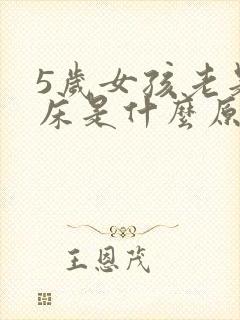 5歲女孩老是
床是什麼原
王恩茂